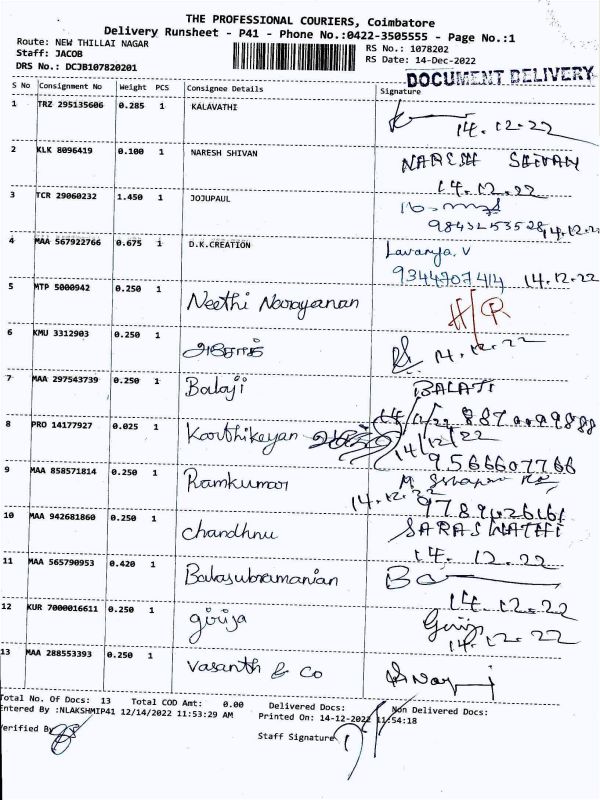 THE PROFESSIONAL COURIERS, Coimbatore
Delivery Runsheet - P41 - Phone No.:0422-3505555 - Page No.:1
Route: NEW THILLAI NAGAR RS No.: 1078202
Staff: JACOB RS Date: 14-Dec-2022
DRS No.: DCJB107820201
DOCUMENT DELIVERY
S No Consignment No Weight PCS Consignee Details Signature
1 TRZ 295135606 0.285 1 KALAVATHI
14.12.22
2 KLK 8096419 0.100 1 NARESH SHIVAN NARESH SHIVAN
14.12.22
3 TCR 29060232 1.450 1 JOJUPAUL
14.12.22
4 MAA 567922766 0.675 1 D.K.CREATION Lavanya. V
9344707414 14.12.22
5 MTP 5000942 0.250 1 Neethi Narayanan
6 KMU 3312903 0.250 1
14.12.22
7 MAA 297543739 0.250 1 Balaji BALAJI
14/12/22
8 PRO 14177927 0.025 1 Karthikeyan
14/12/22
9566607766
9 MAA 858571814 0.250 1 Ramkumar
14.12.22
10 MAA 942681860 0.250 1 Chandhnu SARASWATHI
14. 12.22
11 MAA 565790953 0.420 1 Balasubramanian
14.12.22
12 KUR 7000016611 0.250 1 girija Girija
14.12.22
13 MAA 288553393 0.250 1 Vasanth & Co
Total No. Of Docs: 13 Total COD Amt: 0.00 Delivered Docs: Non Delivered Docs:
Entered By :NLAKSHMIP41 12/14/2022 11:53:29 AM Printed On: 14-12-2022 11:54:18
Verified By Staff Signature